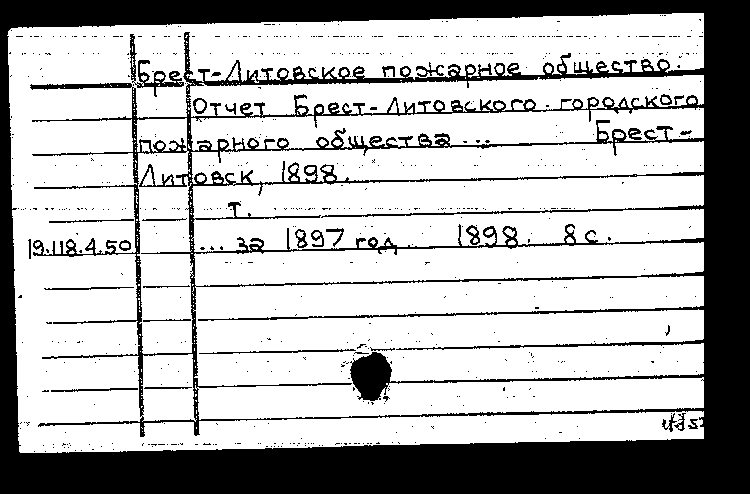 Брест-Литовское пожарное общество.
Отчет Брест-Литовского городского
пожарного общества ... Брест-
Литовск, 1898.
т.
19.118.4.50 ... за 1897 год 1898. 8 с.